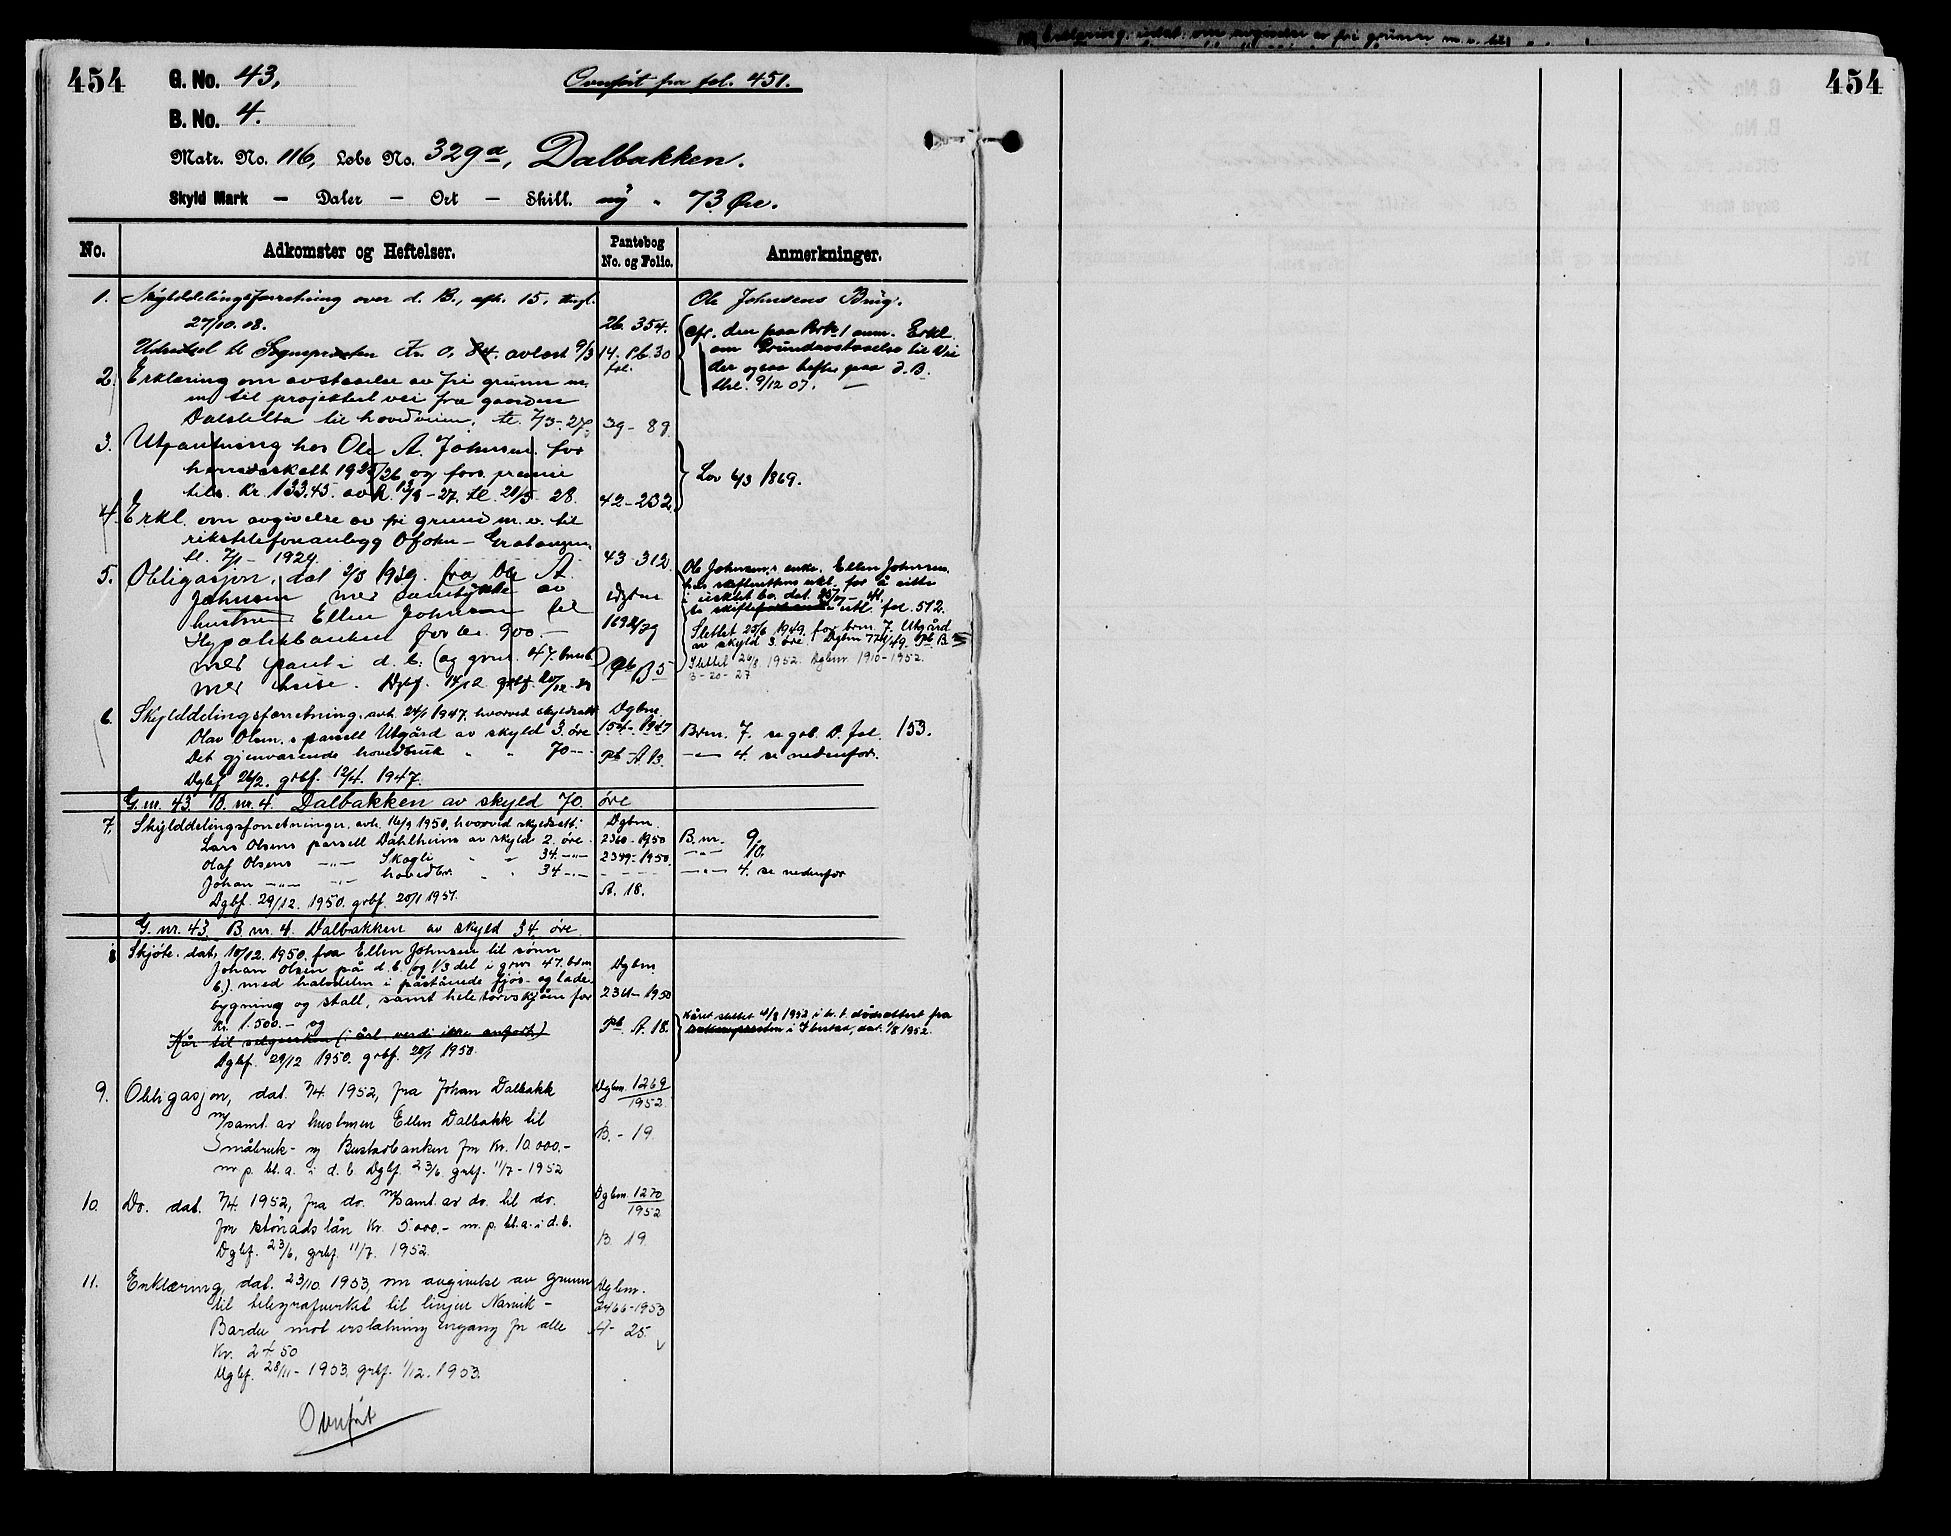 454
G. No. 43,
Overført fra fol. 451.
454
B. No. 4.
Matr. No. 116, Løbe No. 329a, Dalbakken.
Skyld Mark — Daler — Ort — Skill. ny - 73 Øre.
No. Adkomster og Heftelser. Pantebog No. og Folio. Anmerkninger.
1. Skylddelingsforretning over d. B., afh. 15, thgl.
27/10.08. 26. 354.
Ole Johnsens Brug.
2. Erklæring om avstaaelse av fri grunn m.
m. til projektert vei fra gaarden
Dalsletta til hovedveien, tl. 7/3-27. 39 - 89
cfr. den paa Brk 1 anm. Erkl.
om Grundavstaaelse til Vei
der ogsaa hefter paa d. B.
thl. 9/12 07.
3. Utpantning hos Ole A. Johnsen for
herredsskatt 1925/26 og fors. premie
tils. kr. 133.45. avh. 13/8-27, tl. 21/5 28. 42-232
Lov 6/3 1869.
4. Erkl. om avgivelse av fri grund m.v. til
rikstelefonanlegg Ofoten - Gratangen,
tl. 7/1 - 1929. 43-312
5. Obligasjon, dat. 2/8 1939. fra Ole A.
Johnsen med samtykke av
hustru Ellen Johnsen til
Hypotekbanken for kr. 900.-
med pant i d. b. (og gnr. 47. bnr. 6)
med huse. Dgbf. 14/12 grbf. 20/12-39
Dgbnr
1692/39
Pb B 5
Ole Johnsens enke, Ellen Johnsen
har skifterettens utl. for å sitte
i uskiftet bo, dat. 25/9 - 41.
Slettet 25/6 1949, for brnr. 7. Utgård
av skyld 3 øre.
Slettet 26/8 1952. Dgbnr 1910-1952.
B-20-27
6. Skylddelingsforretning, avh. 24/1 1947, hvorved skyldsatt
Olav Olsen, s parsell Utgård av skyld 3 øre
Det gjenværende hovedbruk " " 70 -"-
Dgbf 26/2. grbf. 12/4. 1947.
Dgbnr.
154-1947
Pb A 13.
Brnr. 7. se grb. D. fol. 153.
-"- 4. se nedenfor.
G.nr. 43. B.nr. 4. Dalbakken av skyld 70 øre
7. Skylddelingsforretninger, avh. 16/9 1950, hvorved skyldsatt:
Lars Olsens parsell Dahlheim av skyld 2 øre
Olaf Olsens -"- Skogli " " 34 -"-
Johan -"- -"- hovedbr. " " 34 -"-
Dgbf. 29/12. 1950. grbf. 20/1 1951.
Dgbnr.
2360-1950
2349-1950.
A. 18.
B.nr. 9.
-"- 10.
-"- 4. se nedenfor
G.nr. 43 B.nr. 4. Dalbakken av skyld 34 øre
8 Skjøte, dat. 10/12 1950, fra Ellen Johnsen til sønn
Johan Olsen på d.b. og 1/3 del i gnr 47. bnr
6.) med halvdelen i påstående fjøs- og lade-
bygning og stall, samt hele torvskjåen for
kr. 1.500.- og
Kår til selgersken (i årl. verdi ikke anført)
Dgbf. 29/12 1950. grbf. 20/1 1950.
Dgbnr
2361-1950
Pb. A. 18.
Kåret slettet 4/8 1952, i h.t. dødsattest fra
sokneprosten i Ibestad, dat. 1/8 1952.
9. Obligasjon, dat. 7/4. 1952, fra Johan Dalbakk
m/samt. av hustruen Ellen Dalbakk til
Småbruk- og Bustadbanken for kr. 10.000.-
m.p. bl.a. i d.b. Dgbf. 23/6. grbf. 11/7-1952
Dgbnr. 1269
1952.
B.-19.
10. Do. dat. 7/4. 1952, fra do. m/samt. av do. til do.
for stønadslån kr 5.000.- m.p. bl.a. i d.b.
Dgbf. 23/6, grbf. 11/7. 1952.
Dgbnr. 1270
1952
B. 19
11. Erklæring, dat. 23/10 1953, om avgivelse av grunn
til telegrafverket til linjen Narvik -
Bardu mot erstatning engang for alle
Kr. 24 50
Dgbf. 28/11-1953, grbf. 1/12. 1953.
Dgbnr.
2466-1953
A- 25.
Overført